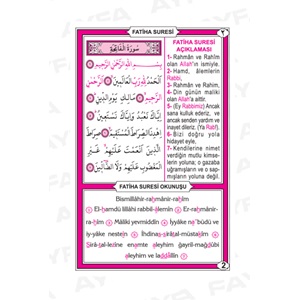 FATİHA SURESİ
٢
سُورَةُ الْفَاتِحَةِ
بِسْمِ اللّٰهِ الرَّحْمٰنِ الرَّحِيمِ
اَلْحَمْدُ لِلّٰهِ رَبِّ الْعَالَمِينَ اَلرَّحْمٰنِ
الرَّحِيمِ مَالِكِ يَوْمِ الدِّينِ
اِيَّاكَ نَعْبُدُ وَاِيَّاكَ نَسْتَعِينُ
اِهْدِنَا الصِّرَاطَ الْمُسْتَقِيمَ صِرَاطَ
الَّذِينَ اَنْعَمْتَ عَلَيْهِمْ غَيْرِ
الْمَغْضُوبِ عَلَيْهِمْ وَلَا الضَّالِّينَ
FATİHA SURESİ
AÇIKLAMASI
1- Rahmân ve Rahîm
olan Allah'ın ismiyle.
2- Hamd, âlemlerin
Rabbi,
3- Rahmân ve Rahim,
4- Din günün mâliki
olan Allah'a aittir.
5- (Ey Rabbimiz) Ancak
sana kulluk ederiz, ancak
senden yardım ve
inayet dileriz. (Ya Rab!).
6- Bizi doğru yola
hidayet eyle!
7- Kendilerine nimet
verdiğin mutlu kimse-
lerin yoluna; o gazaba
uğramışların ve o sap-
mışların yoluna değil.
FATİHA SURESİ OKUNUŞU
Bismillâhir-rahmânir-rahîm
El-hamdü lillâhi rabbil-âlemîn
Er-rahmânir-
rahîm
Mâliki yevmiddîn
İyyâke na'büdü ve
iy-yâke nesteîn
İhdinas-sirâtal-müstakîm
Sirâ-tal-lezîne enamte aleyhim ğayril-mağdûbi
aleyhim ve laddâllîn
2